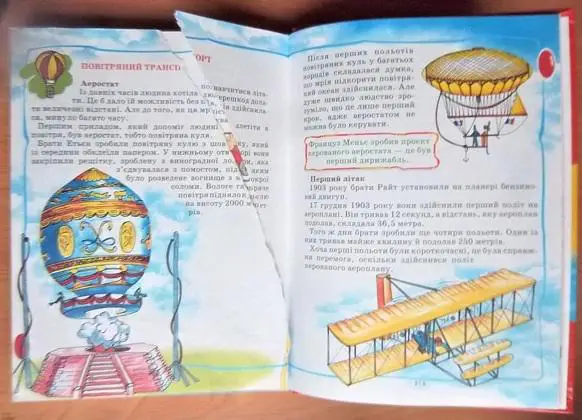 ПОВІТРЯНИЙ ТРАНСПОРТ
Аеростат
Із давніх часів людина хотіла
ти. Це б дало їй можливість без
ти величезні відстані. Але до того, як ця
са, минуло багато часу.
Першим приладом, який допоміг людині злетіти в
повітря, був аеростат, тобто повітряна куля.
Брати Етьєн зробили повітряну кулю з шовку, який
із середини обклеїли папером. У нижньому отворі вони
закріпили решітку, зроблену з виноградної лози, яка
з'єднувалася з помостом, під яким
було розведене вогнище з мокрої
соломи. Вологе гаряче
повітря підняло кулю
на висоту 2000 метрів.
Після перших польотів
повітряних куль у багатьох
народів складалася думка,
що мрія підкорити повітряний
океан здійснилася. Але
дуже швидко людство зрозуміло,
що це лише перший
крок, адже аеростатом не
можна було керувати.
Француз Меньє зробив проект
керованого аеростата — це був
перший дирижабль.
Перший літак
1903 року брати Райт установили на планері бензиновий
двигун.
17 грудня 1903 року вони здійснили перший політ на
аероплані. Він тривав 12 секунд, а відстань, яку аероплан
подолав, складала 36,5 метра.
Того ж дня брати зробили ще чотири польоти. Один із
них тривав майже хвилину й подолав 250 метрів.
Хоча перші польоти були короткочасні, це була справжня
перемога, оскільки здійснився політ
керованого аероплану.